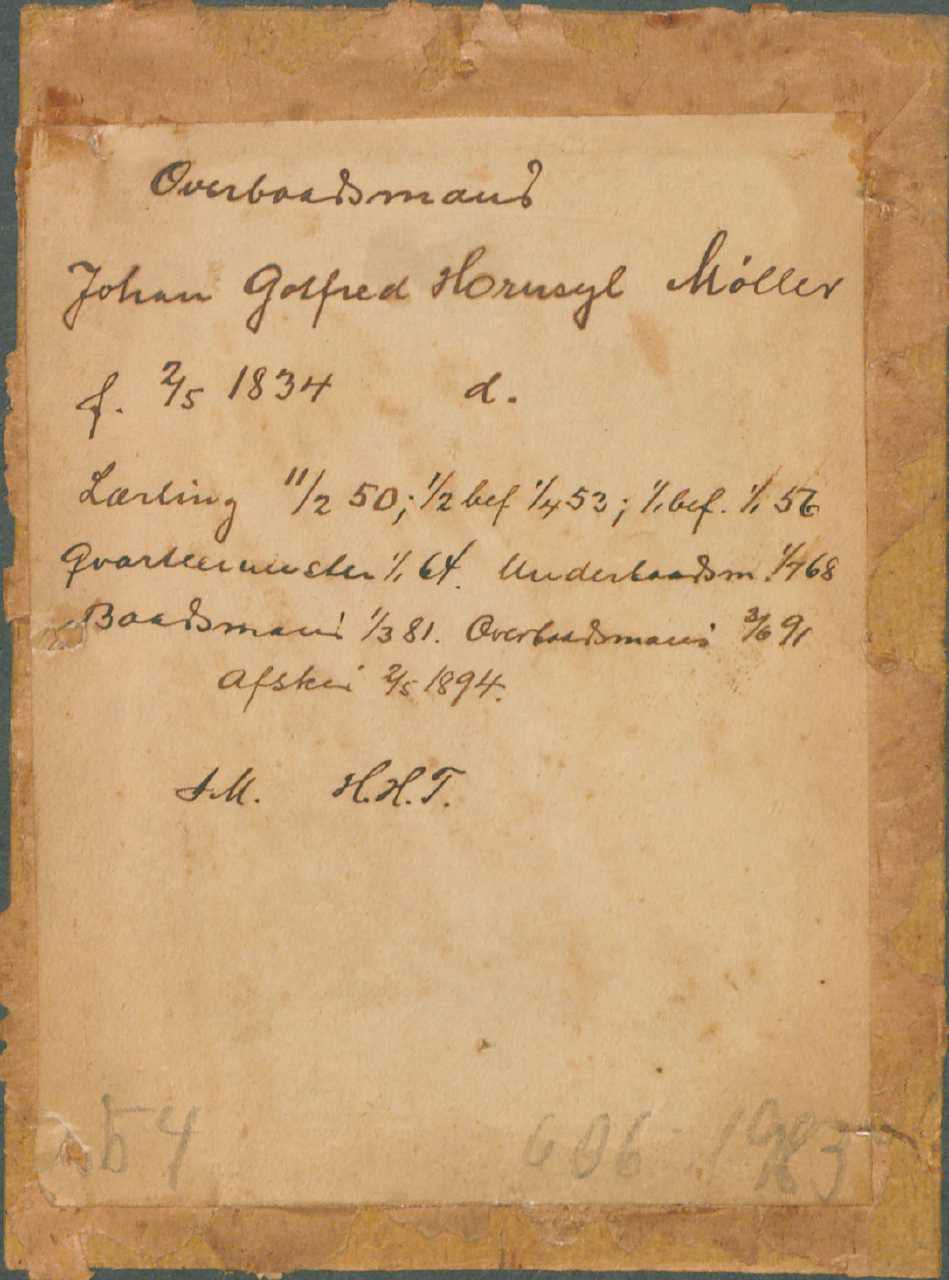 Overbaadsmand
Johan Gotfred Hornsyl Møller
f. 2/5 1834 d.
Lærling 11/2 50; 1/2 bef 1/4 53; 1/1 bef. 1/1 56
Qvarteermester 1/1 64. Underbaadsm. 1/7 68
Baadsmand 1/3 81. Overbaadsmand 3/6 91
Afsked 2/5 1894.
S.M. H.H.T.
b54
606 1983